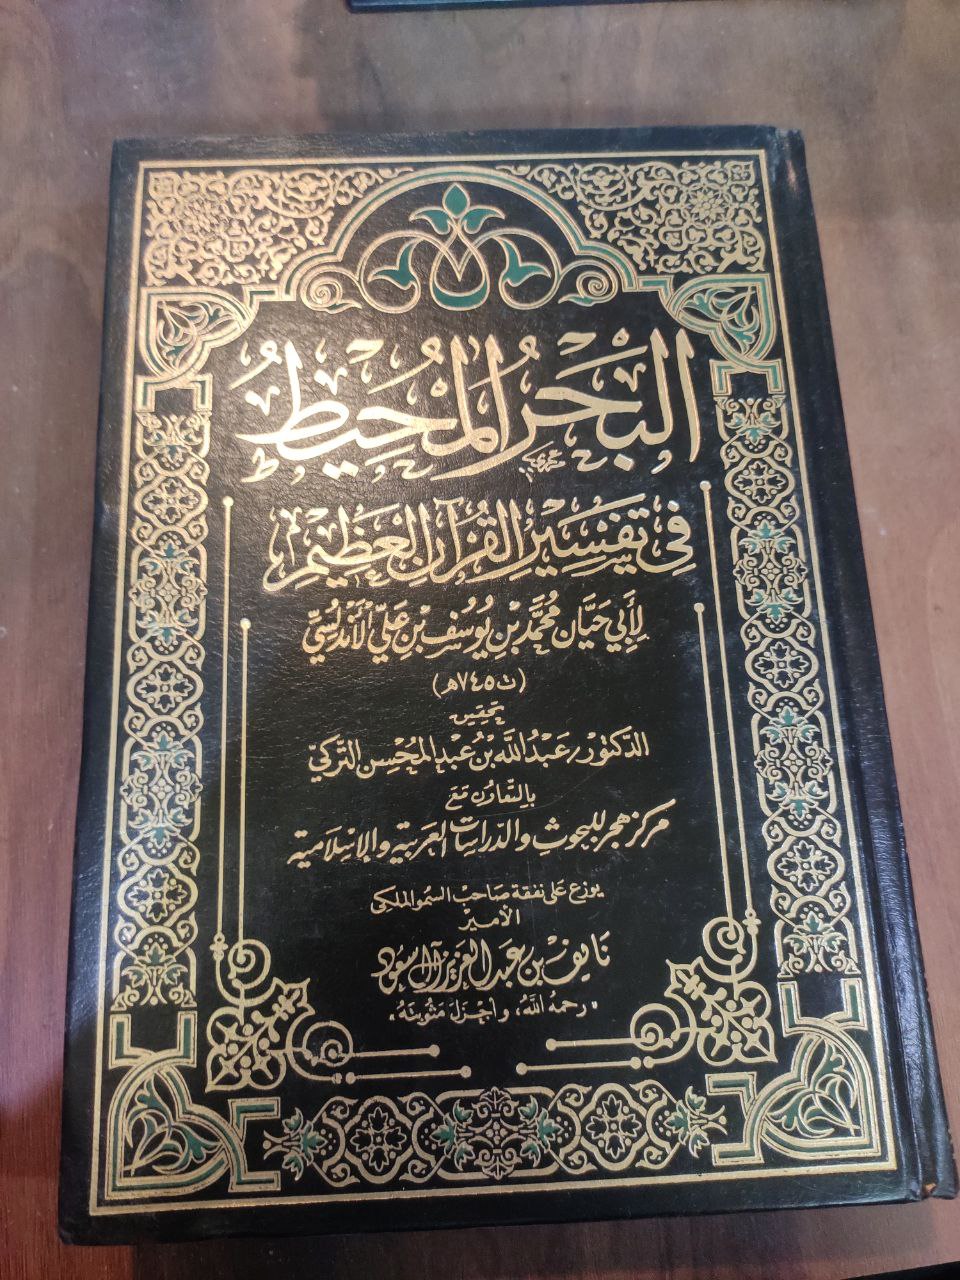 البَحْرُ المُحِيطُ
فِي تَفْسِيرِ القُرْآنِ العَظِيمِ
لِأَبِي حَيَّان مُحَمَّد بْن يُوسُف بْن عَلِيّ الأَنْدَلُسِيّ
(ت ٧٤٥هـ)
تحقيق
الدّكتور/ عَبْدُ اللَّه بْن عَبْدِ المُحْسِن التّركيّ
بِالتّعَاوُن مَعَ
مركز هجر للبحوث والدّراسات العربية والإسلامية
يوزع على نفقة صاحب السمو الملكي
الأمير
نَايِف بْن عَبْد العَزِيز آل سعُود
"رحمهُ اللَّهُ، وأجْزَلَ مَثُوبَتَهُ"